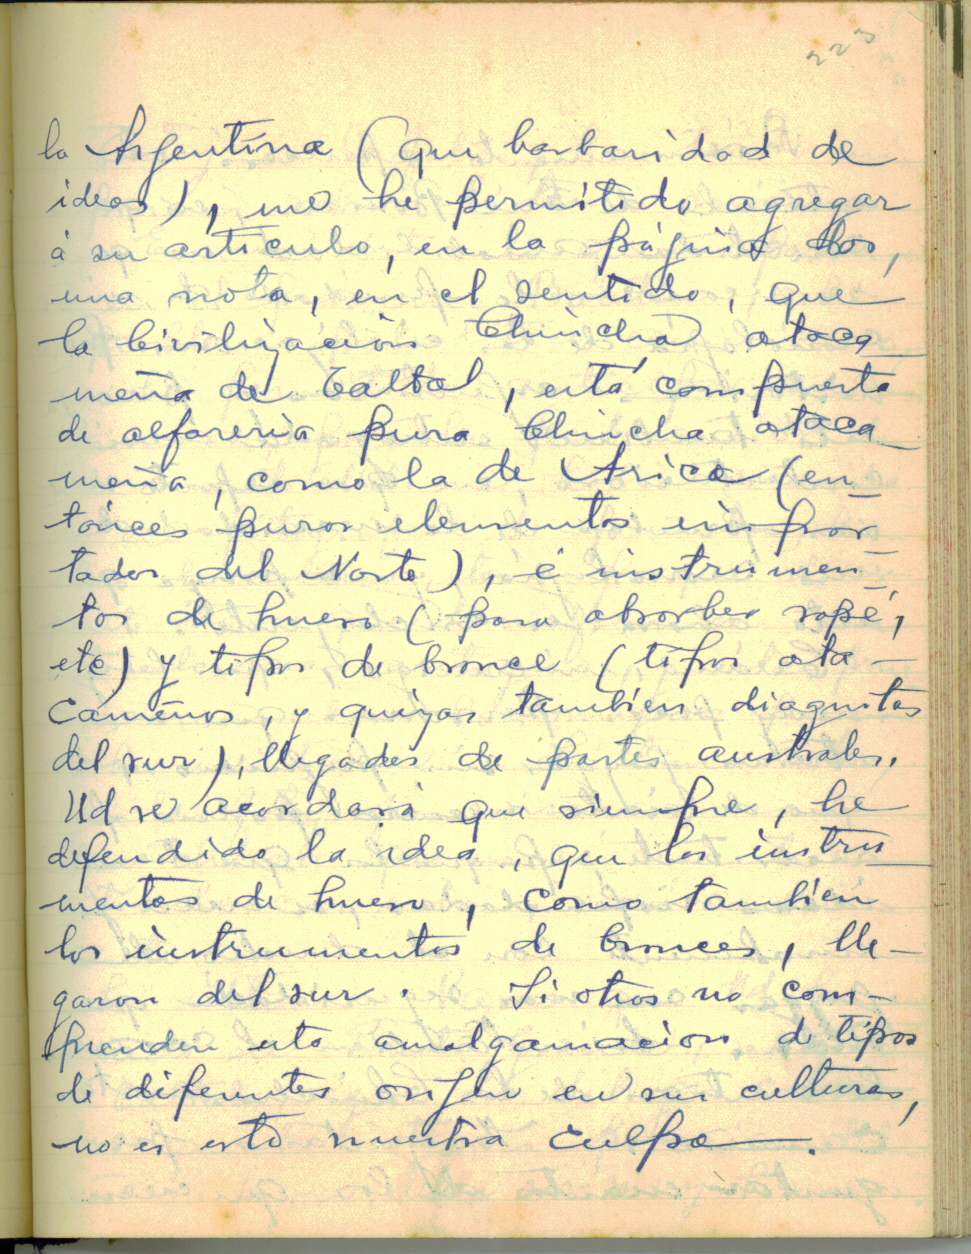 223
la Argentina (que barbaridad de
ideas), me he permitido agregar
á su articulo, en la página dos,
una nota, en el sentido, que
la Civilización Chincha ataca
meña de Taltal, está compuesta
de alfareria pura Chincha ataca
meña, como la de Arica (en-
tónces puros elementos impor-
tados del Norte), é instrumen-
tos de hueso (para absorber rapé,
etc) y tipos de bronce (tipos ata-
cameños, y quizas también diaguitas
del sur), llegados de partes australes.
Ud se acordará que siempre, he
defendido la idea, que los instru
mentos de hueso, como también
los instrumentos de bronces, lle-
garon del sur. Si otros no com-
prenden esta amalgamación de tipos
de diferentes origen en sus culturas,
no es esto nuestra culpa.